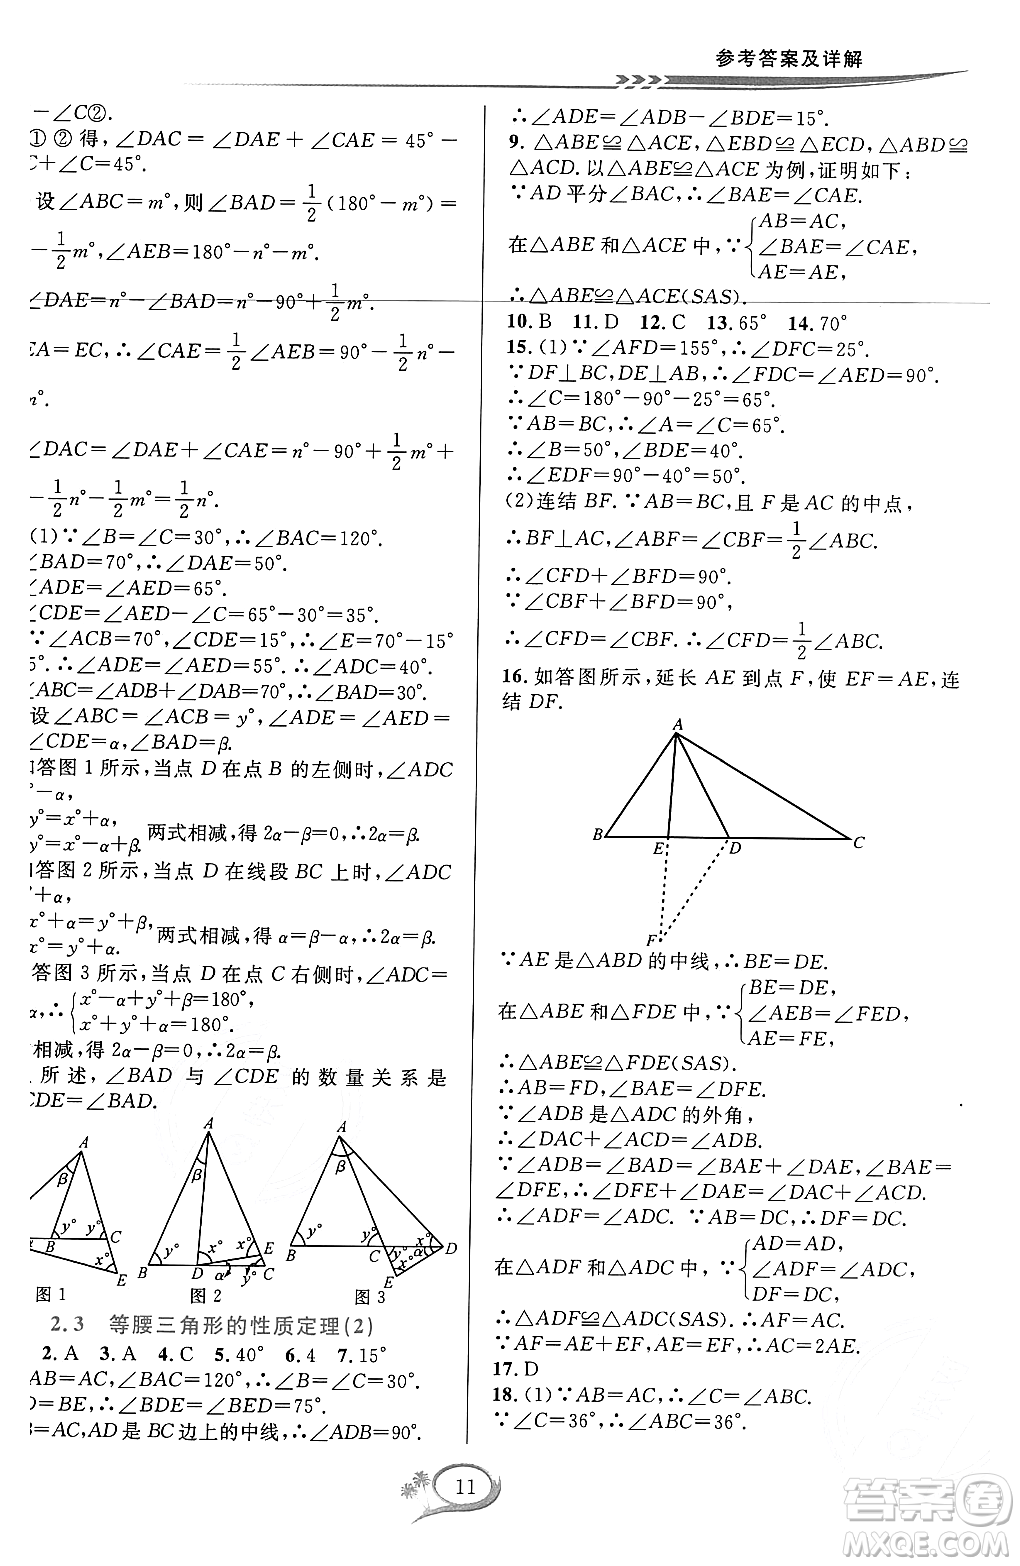 参考答案及详解
－∠C②.
① ②得，∠DAC＝∠DAE＋∠CAE＝45°－
C＋∠C＝45°.
设∠ABC＝m°，则∠BAD＝1/2(180°－m°)＝
－1/2m°，∠AEB＝180°－n°－m°.
∠DAE＝n°－∠BAD＝n°－90°＋1/2m°.
EA＝EC，∴∠CAE＝1/2∠AEB＝90°－1/2n°－
m°.
∠DAC＝∠DAE＋∠CAE＝n°－90°＋1/2m°＋
－1/2n°－1/2m°＝1/2n°.
(1)∵∠B＝∠C＝30°，∴∠BAC＝120°.
∠BAD＝70°，∴∠DAE＝50°.
∠ADE＝∠AED＝65°.
∠CDE＝∠AED－∠C＝65°－30°＝35°.
∵∠ACB＝70°，∠CDE＝15°，∴∠E＝70°－15°
55°.∴∠ADE＝∠AED＝55°.∴∠ADC＝40°.
∠ABC＝∠ADB＋∠DAB＝70°，∴∠BAD＝30°.
设∠ABC＝∠ACB＝y°，∠ADE＝∠AED＝
∠CDE＝α，∠BAD＝β.
如答图 1 所示，当点 D 在点 B 的左侧时，∠ADC
°－α，
y°＝x°＋α，
y°＝x°－α＋β. 两式相减，得 2α－β＝0，∴2α＝β.
如答图 2 所示，当点 D 在线段 BC 上时，∠ADC
°＋α，
x°＋α＝y°＋β，
x°＝y°＋α. 两式相减，得 α＝β－α，∴2α＝β.
答图 3 所示，当点 D 在点 C 右侧时，∠ADC＝
α，∴ x°－α＋y°＋β＝180°，
x°＋y°＋α＝180°.
相减，得 2α－β＝0，∴2α＝β.
所述，∠BAD 与 ∠CDE 的数量关系是
CDE＝∠BAD.
A
β
y° y°
B C
x°
E
图 1
A
β
y° x° x° E
B D α y° C
图 2
A
β
y° y° x° α
B C D
x°
E
图 3
2.3 等腰三角形的性质定理(2)
2. A 3. A 4. C 5. 40° 6. 4 7. 15°
AB＝AC，∠BAC＝120°，∴∠B＝∠C＝30°.
D＝BE，∴∠BDE＝∠BED＝75°.
B＝AC，AD 是 BC 边上的中线，∴∠ADB＝90°.
∴∠ADE＝∠ADB－∠BDE＝15°.
9. △ABE≌△ACE，△EBD≌△ECD，△ABD≌
△ACD. 以△ABE≌△ACE 为例，证明如下：
∵AD 平分∠BAC，∴∠BAE＝∠CAE.
AB＝AC，
在△ABE 和△ACE 中，∵ ∠BAE＝∠CAE，
AE＝AE，
∴△ABE≌△ACE(SAS).
10. B 11. D 12. C 13. 65° 14. 70°
15. (1)∵∠AFD＝155°，∴∠DFC＝25°.
∵DF⊥BC，DE⊥AB，∴∠FDC＝∠AED＝90°.
∴∠C＝180°－90°－25°＝65°.
∵AB＝BC，∴∠A＝∠C＝65°.
∴∠B＝50°，∠BDE＝40°.
∴∠EDF＝90°－40°＝50°.
(2)连结 BF. ∵AB＝BC，且 F 是 AC 的中点，
∴BF⊥AC，∠ABF＝∠CBF＝1/2∠ABC.
∴∠CFD＋∠BFD＝90°.
∵∠CBF＋∠BFD＝90°，
∴∠CFD＝∠CBF. ∴∠CFD＝1/2∠ABC.
16. 如答图所示，延长 AE 到点 F，使 EF＝AE，连
结 DF.
A
B E D C
F
∵AE 是△ABD 的中线，∴BE＝DE.
BE＝DE，
在△ABE 和△FDE 中，∵ ∠AEB＝∠FED，
AE＝FE，
∴△ABE≌△FDE(SAS).
∴AB＝FD，∠BAE＝∠DFE.
∵∠ADB 是△ADC 的外角，
∴∠DAC＋∠ACD＝∠ADB.
∵∠BAD＝∠BAE＋∠DAE，∠BAE＝
∠DFE，∴∠BAD＝∠DAE＋∠DFE.
∴∠ADF＝∠ADC. ∵AB＝DC，∴DF＝DC.
AD＝AD，
在△ADF 和△ADC 中，∵ ∠ADF＝∠ADC，
DF＝DC，
∴△ADF≌△ADC(SAS). ∴AF＝AC.
∵AF＝AE＋EF＝AE＋AE，∴AC＝2AE.
17. D
18. (1)∵AB＝AC，∴∠C＝∠ABC.
∵∠C＝36°，∴∠ABC＝36°.
11
答案圈
MXQE.COM